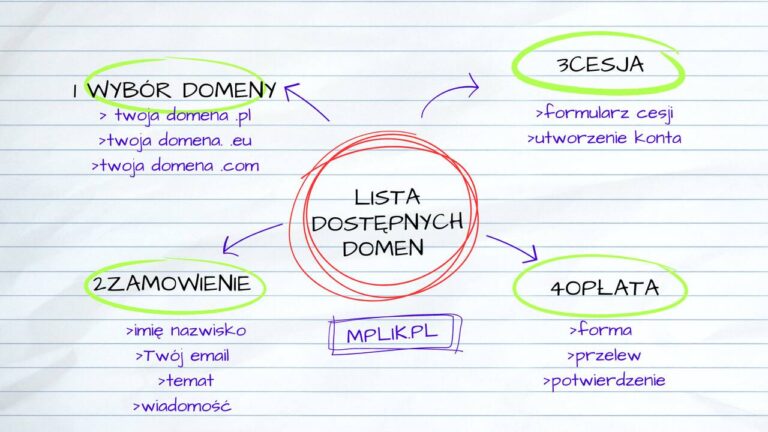 1 WYBÓR DOMENY
> twoja domena .pl
>twoja domena. .eu
>twoja domena .com
3CESJA
>formularz cesji
>utworzenie konta
LISTA
DOSTĘPNYCH
DOMEN
2ZAMOWIENIE
>imię nazwisko
>Twój email
>temat
>wiadomość
4OPŁATA
>forma
>przelew
>potwierdzenie
MPLIK.PL